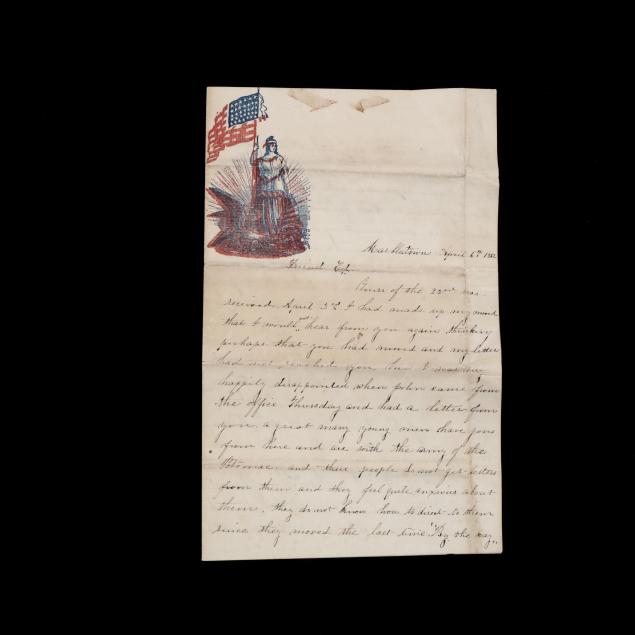 April 6th 1862
Friend Ed.
Yours of the 22nd was
received April 3rd I had made up my mind
that I would not hear from you again thinking
perhaps that you had moved and my letter
had not reached you but I was very
happily disappointed when John came from
the office Thursday and had a letter from
you. a great many young men have gone
from here and are with the army of the
Potomac and their people do not get letters
from them and they feel quite anxious about
them. they do not know how to direct to them
since they moved the last time. By the way,